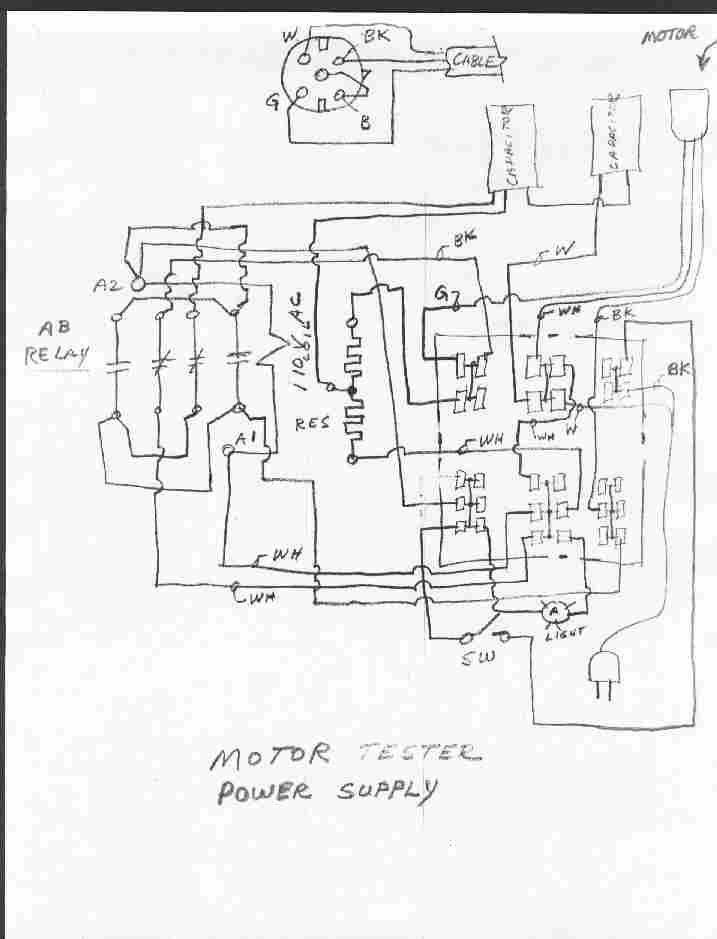 W
BK
MOTOR
CABLE
G
B
CAPACITOR
CAPACITOR
BK
W
A2
G
WH
BK
AB
RELAY
110
AC
BK
RES
WH
W
A1
WH
WH
WH
A
LIGHT
SW
MOTOR TESTER
POWER SUPPLY